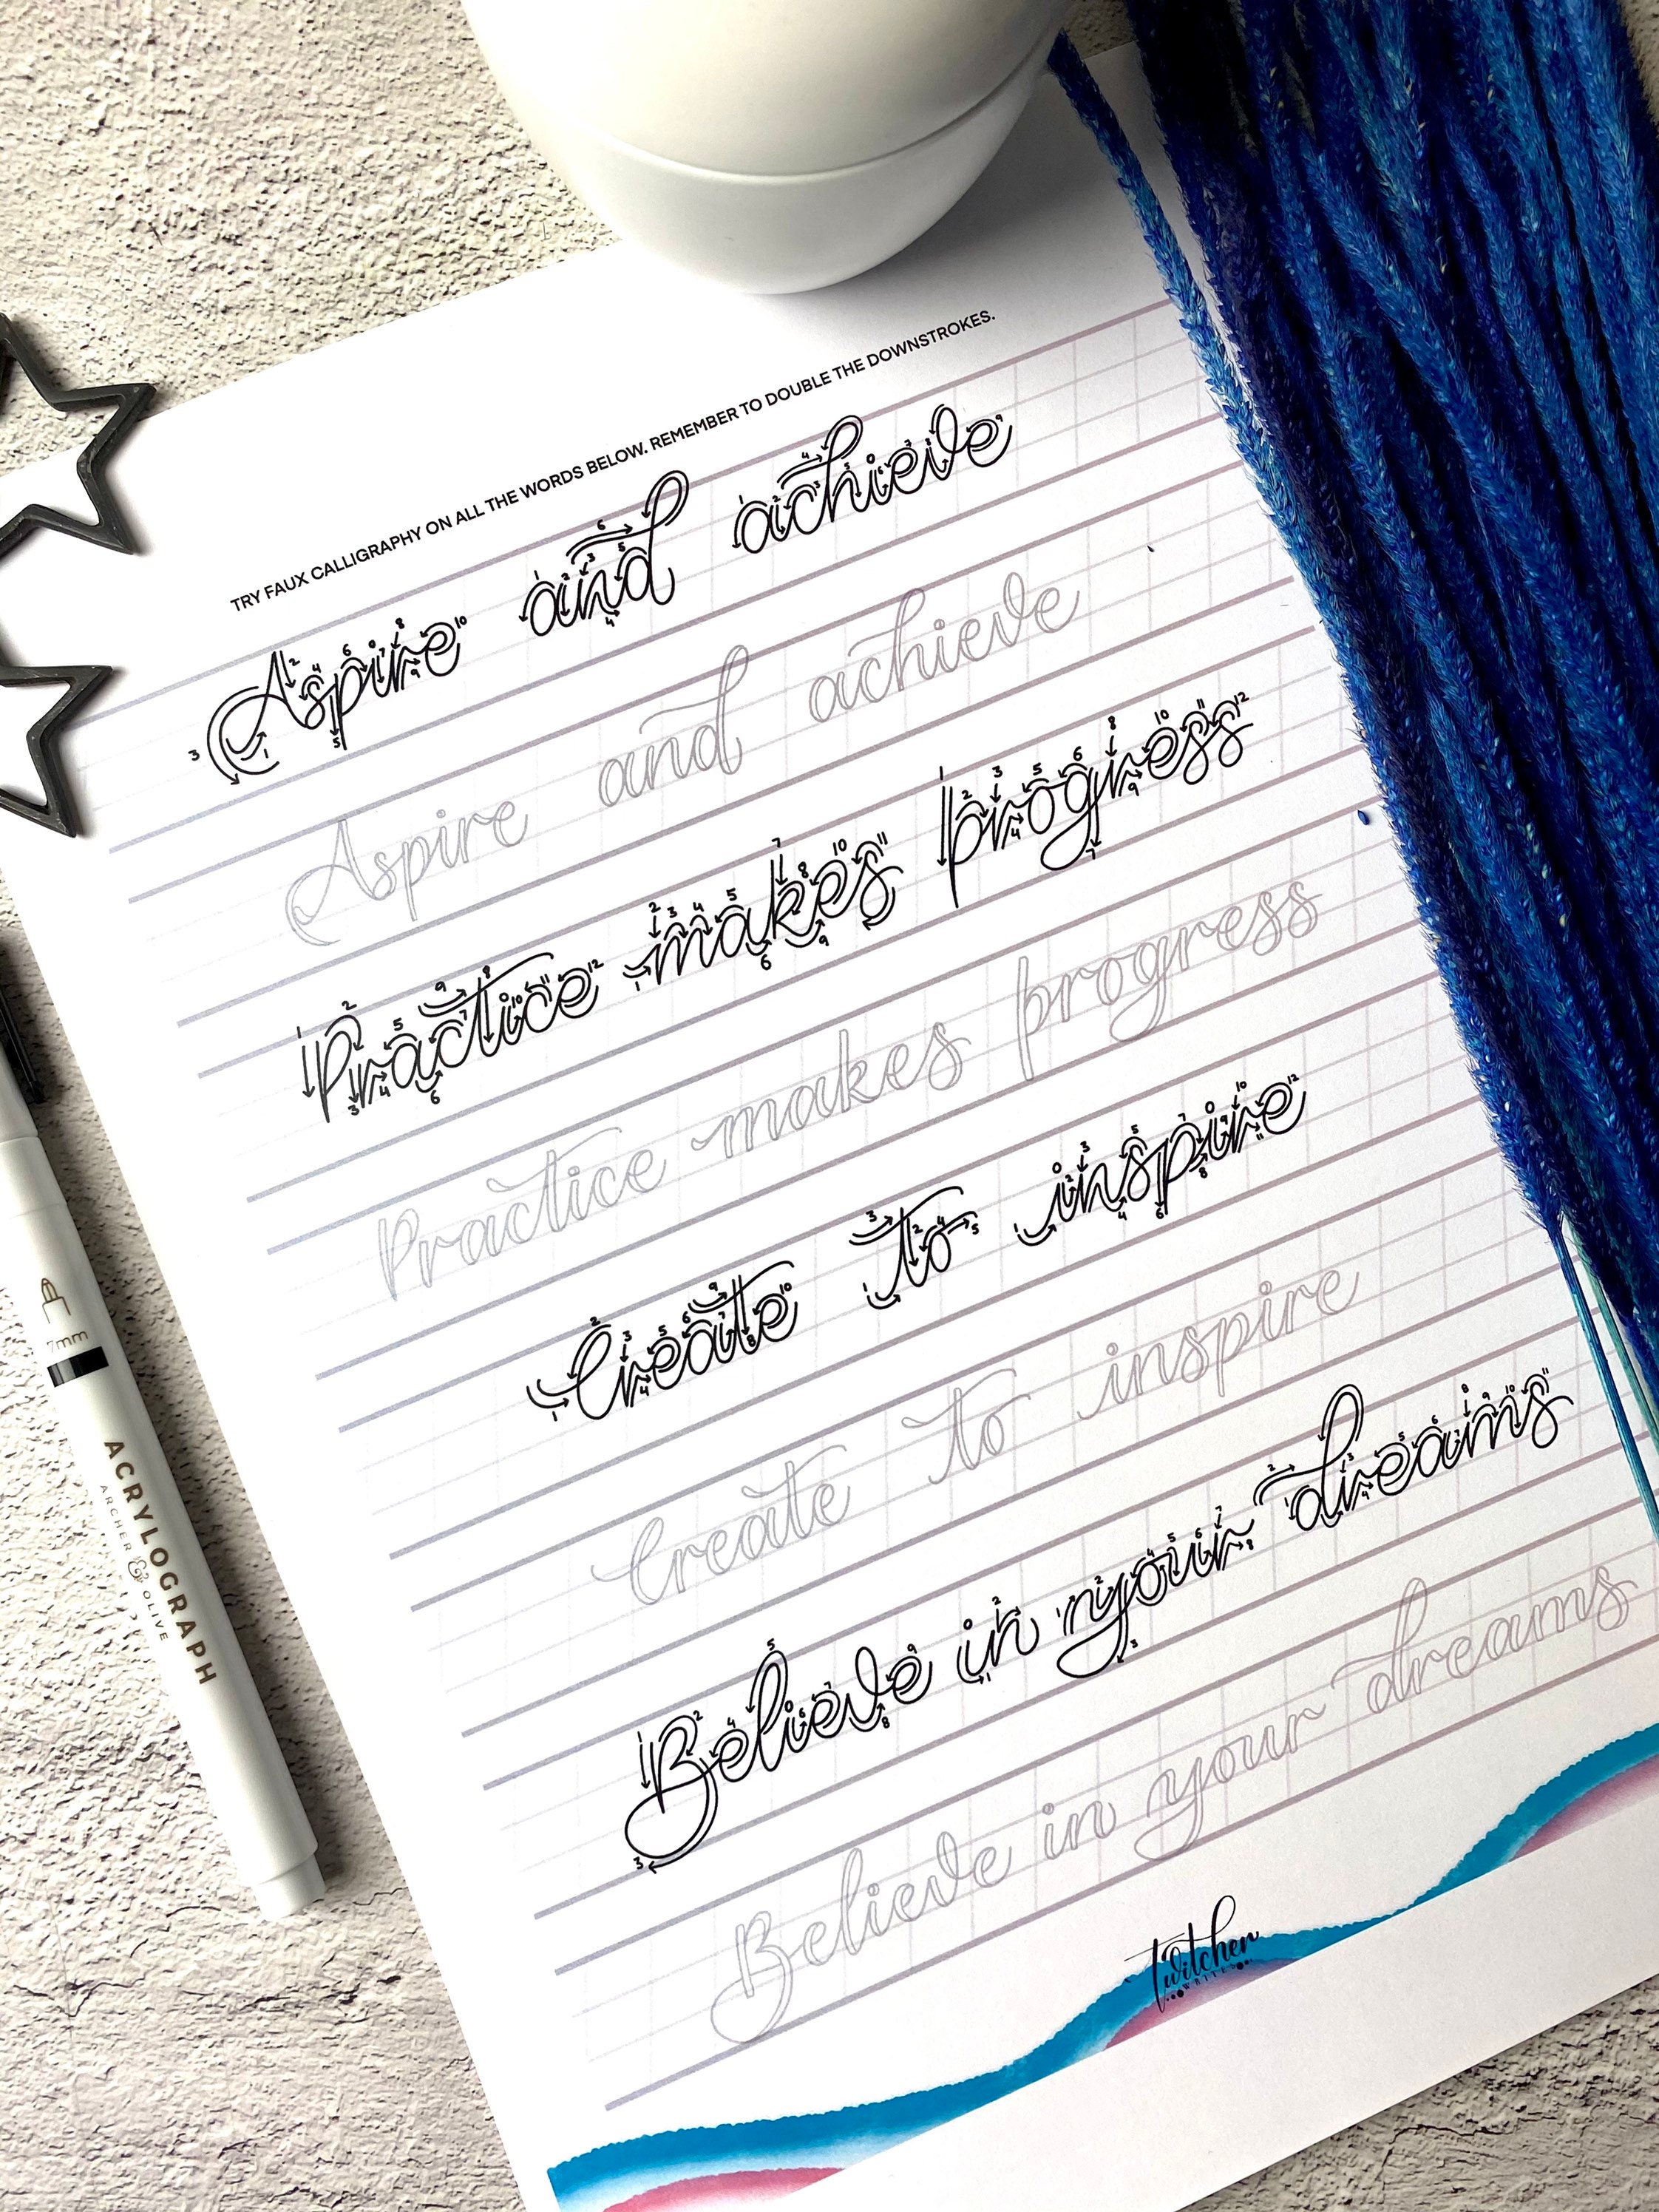 TRY FAUX CALLIGRAPHY ON ALL THE WORDS BELOW. REMEMBER TO DOUBLE THE DOWNSTROKES.
Aspire and achieve
Aspire and achieve
Practice makes progress
Practice makes progress
Create to inspire
Create to inspire
Believe in your dreams
Believe in your dreams
twitcher
WRITES
7mm
ACRYLOGRAPH
ARCHER & OLIVE